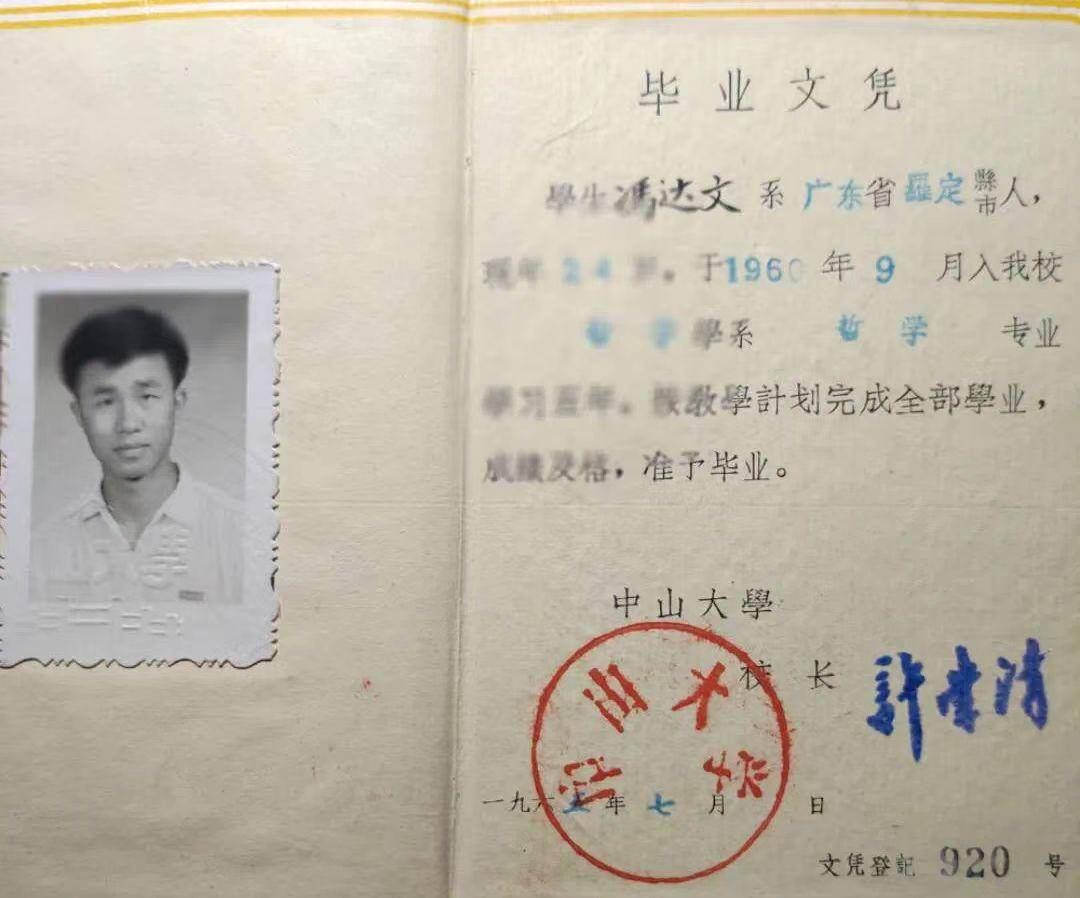 毕业文凭
學生馮达文系广东省羅定縣市人，
现年24岁。于1960年9月入我校
哲学學系 哲学专业
學习五年。按教學計划完成全部學业，
成績及格，准予毕业。
中山大學
校长 許崇清
中山大学
一九六五年七月 日
文凭登記 920 号